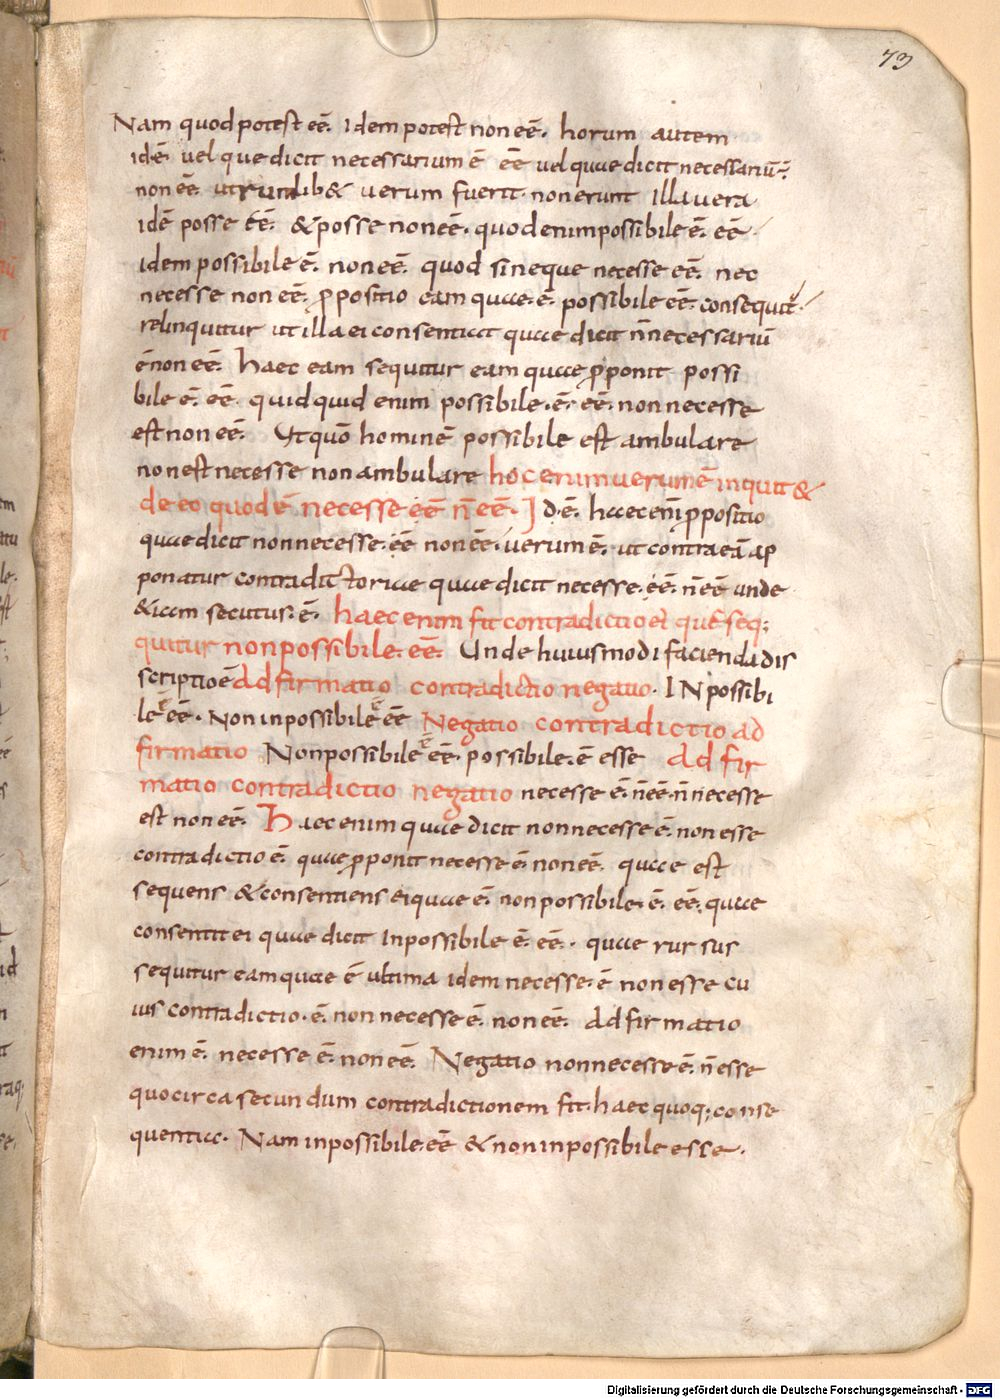 73
Nam quod potest eē. Idem potest non eē. horum autem
id·ē· uel que dicit necessarium ē eē uel quae dicit necessariū ē
non eē utrumlib& uerum fuerit. non erunt illa uera
idē posse eē. & posse non eē. quod enim possibile ē. eē.
idem possibile ē. non eē. quod si neque necesse eē. nec
necesse non eē. ꝓpositio eam quae ē. possibile eē. consequit
relinquitur ut illa ei consentiat quae dicit n̄ necessariū
ē non eē. haec eam sequitur eam quae ꝓponit possi
bile ē. eē. quidquid enim possibile ē. eē. non necesse
est non eē. Ut quō hominē possibile est ambulare
non est necesse non ambulare hoc enim uerum ē inquit &
de eo quod ē necesse eē n̄ eē. d·ē. haec enī ꝓpositio
quae dicit non necesse eē non eē. uerum ē. ut contra eā ap
ponatur contradictoriae quae dicit necesse eē. n̄ eē unde
& iam secutus ē. haec enim fit contradictio ei quē seq;
quitur non possibile eē. Unde huiusmodi facienda dis
scriptio ē adfirmatio contradictio negatio. INpossibi
le ē eē. Non inpossibile ē eē Negatio contradictio ad
firmatio Non possibile ē eē. possibile ē esse adfir
matio contradictio negatio necesse ē. n̄ eē. n̄ necesse
est non eē. Haec enim quae dicit non necesse ē. non esse
contradictio ē. quae ꝓponit necesse ē. non eē. quae est
sequens & consentiens ei quae ē. non possibile ē. eē. quae
consentit ei quae dicit Inpossibile ē. eē. quae rursus
sequitur eam quae ē ultima idem necesse ē non esse cu
ius contradictio ē. non necesse ē. non eē. Adfirmatio
enim ē. necesse ē. non eē. Negatio non necesse ē. n̄ esse
quocirca secundum contradictionem fit. haec quoq; conse
quentia. Nam inpossibile eē & non inpossibile esse.
Digitalisierung gefördert durch die Deutsche Forschungsgemeinschaft - DFG